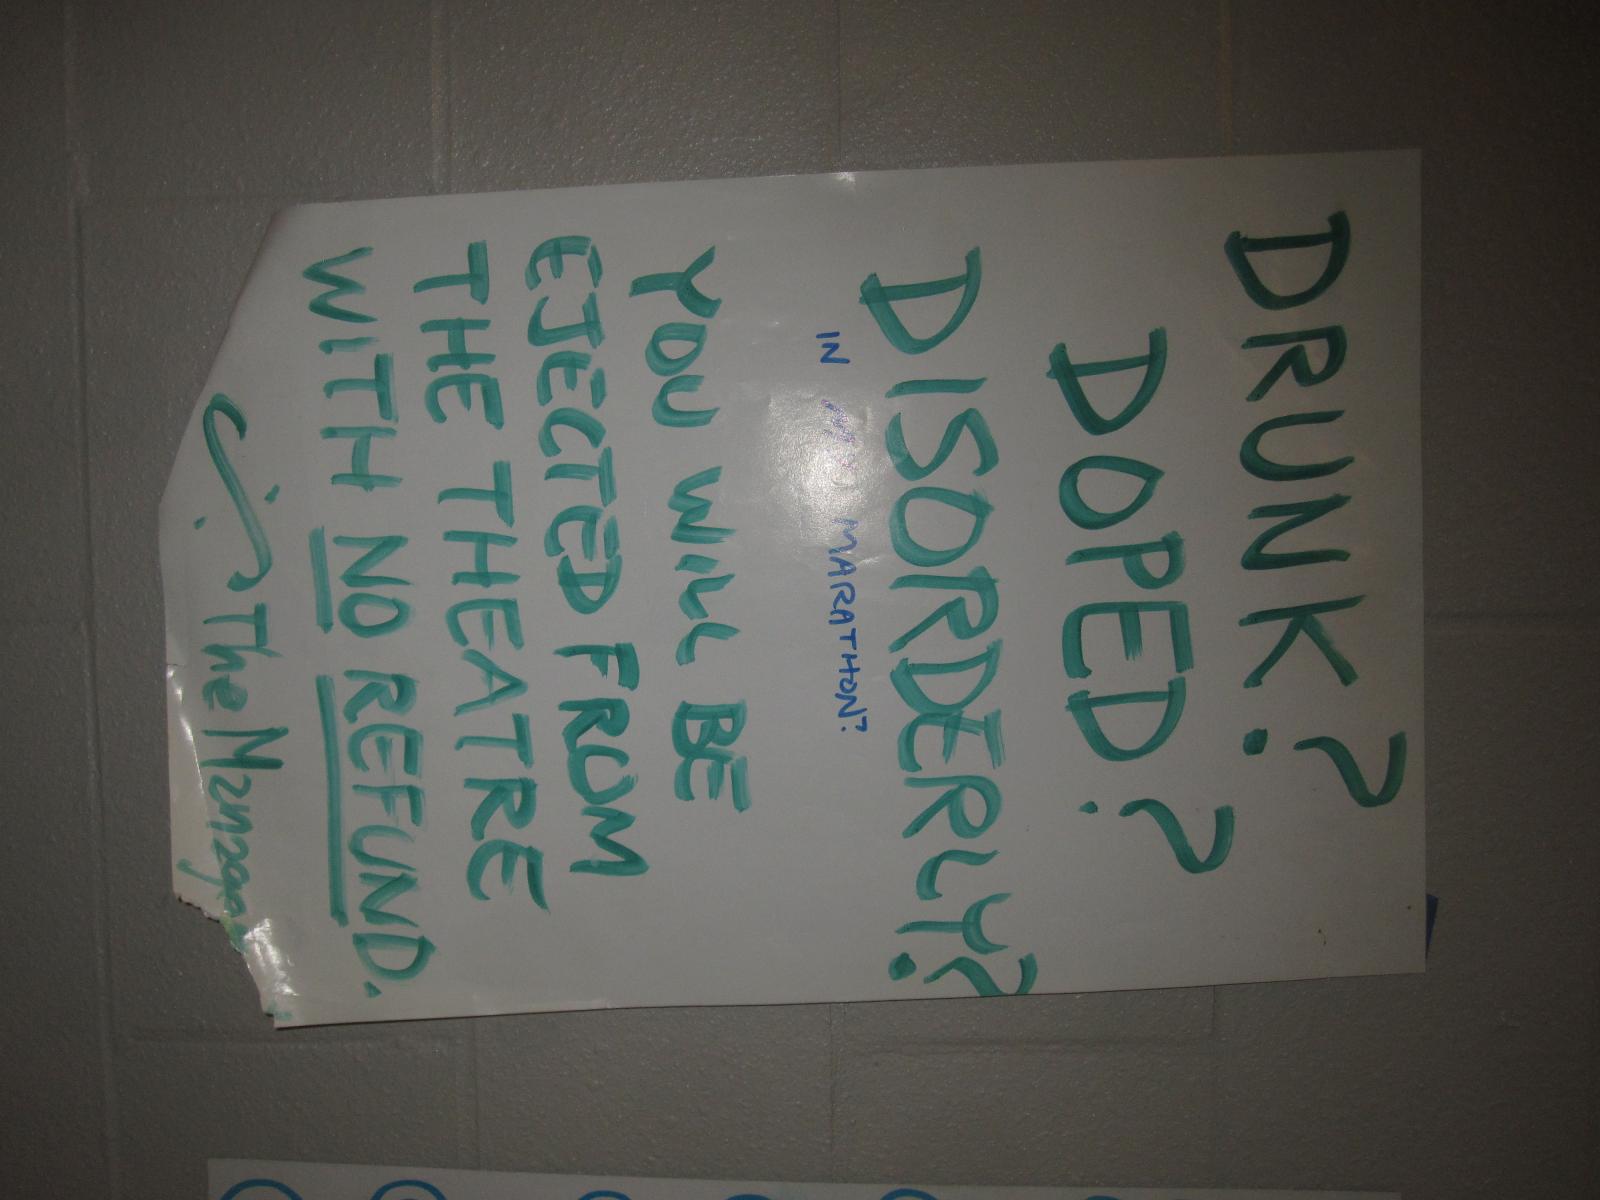 DRUNK?
DOPED?
DISORDERLY?
IN MY MARATHON?
YOU WILL BE
EJECTED FROM
THE THEATRE
WITH NO REFUND.
The